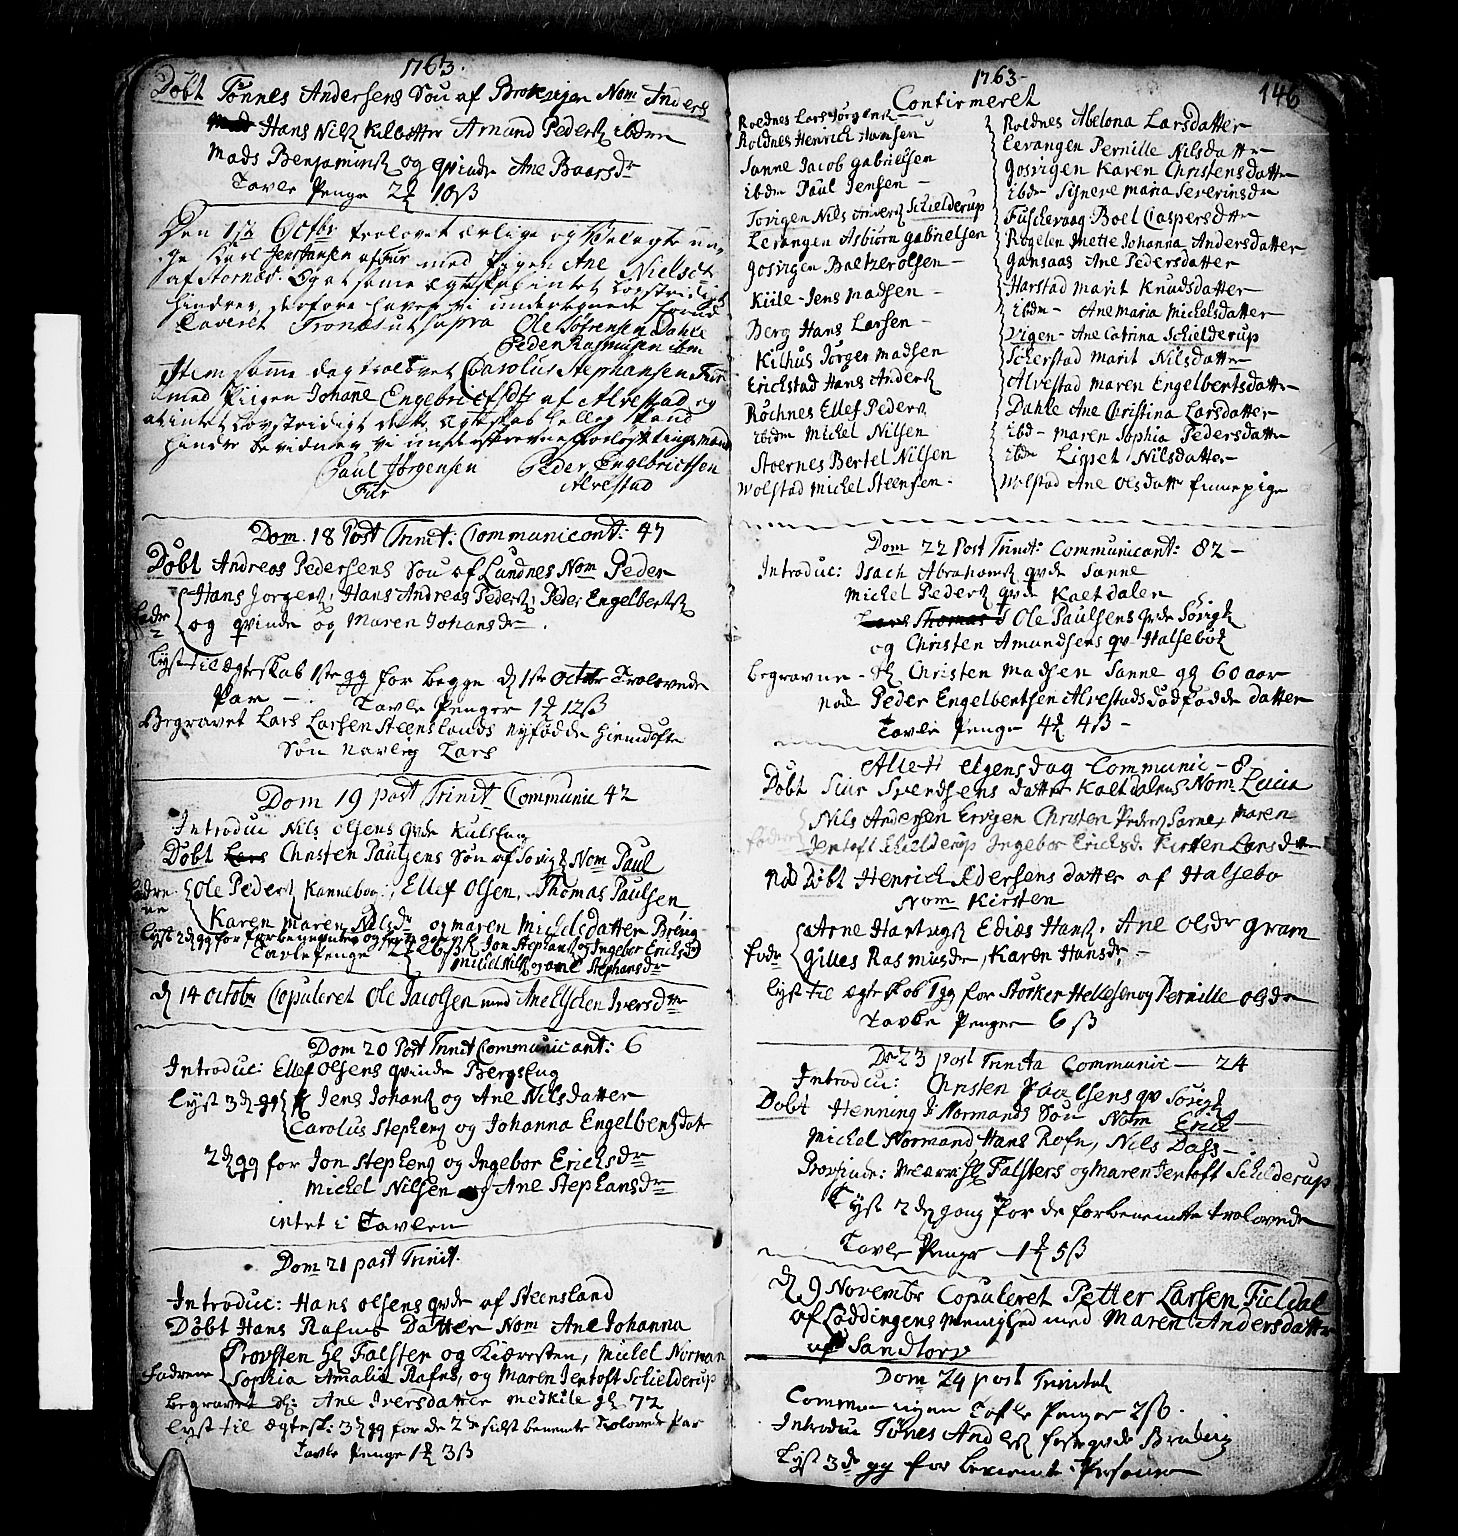 1763.
Döbt Tönnes Andersens Sön af Nom Anders
Hans Nilss Amund Peders ibdm
Mads Benjamins og qvinde Ane Baarsdr
Tavle Penge 2 10ß
Den Octbr trolovet ærlige og
Karl Jens Hansen af Fuir med Pigen Ane Nielsdr
af Stornæs. ægteskab intet lovstridigt
hindrer, derfore undertegnede
Caveret Tronæs ut supra Ole Sörensen Dahle
Peder Rasmusen ibm
Item samme dag trolovet Carolus Stephansen Fuir
med Piigen Johane Engebrictsdtr af Alvestad og
at intet lovstridigt dette ægteskab
hinder bevidner vi underskrevne forlovtningsmænd
Paul Jørgensen Peder Engebrictsen
Fuir Alvestad
Dom. 18 Post Trinit: Communicant: 47
Döbt Andreas Pedersens Sön af Lundnes Nom Peder
fadr Hans Jorgens, Hans Andreas Peders, Peder Engelberts
og qvinde og Maren Johansdr.
Lyst til ægteskab 1ste gg for begge d 1ste Octbr Trolovede
Par — Tavle Penger 1 12ß
Begravet Lars Larsen Steenslands nyfödde hiemdöfte
Sön navlig Lars
Dom 19 post Trinit Communic 42
Introduc Nils Olsens qvde Kulseng
Döbt Christen Paulsens Sön af Sörvig Nom Paul
Ole Peders Kannebog, Ellef Olsen, Thomas Paulsen
Karen Maren Nilsdr og Maren Michelsdatter Breivig
Lyst 2d gg for forbenevnte og förste gang for Jon Stephans og Ingebor Ericksd
Tavle penge 2 6ß Michel Nils og Ane Stephansdr
d 14 octobr Copuleret Ole Jacobsen med Ane Elschen Iversdtr
Dom 20 Post Trinit Communicant: 6
Introduc: Ellef Olsens qvinde Bergseng
Lyst 3d gg for Jens Johans og Ane Nilsdatter
Carolus Stephens og Johanna Engelbertsdatr
2d gg for Jon Stephens og Ingebor Ericksdr
Michel Nilsen og Ane Stephansdr
intet i Tavlen
Dom 21 post Trinit.
Introduc: Hans Olsens qvde af Steensland
Döbt Hans Rafns Datter Nom Ane Johanna
Fadrene Provsten Hl Falster og Kiæresten, Michel Norman
Sophia Amalia Rafns, og Maren Jentoft Schielderup
begravet Ane Iversdatter Medkile gl 72
Lyst til ægtesk: 3d gg for de 2de sidst benevnte Trolovede Par
Tavle Penge 1 3ß
1763- 146
Confirmeret
Roldnes Lars Jörgens —
Roldnes Henrich Hansen
Sanne Jacob Gabrielsen
ibdm Paul Jensen —
Torigen Nils Anders Schielderup
Lerangen Asbiörn Gabrielsen
Gosvigen Baltzer Olsen —
Kiile - Jens Madsen —
Berg Hans Larsen —
Kilhus Jörger Madsen
Erickstad Hans Anders
Röchnes Ellef Peders
ibdm Michel Nilsen
Stoernes Bertel Nilsen
Wolstad Michel Steensen -
Roldnes Abelona Larsdatter
Lerangen Pernille Nilsdatter
Gosvigen Karen Christensdatter
ibdm Signere Maria Severinsdr
Fuskevaag Boel Caspersdtr
Rogelen Mette Johanna Andersdatter
Gansaas Ane Pedersdatter
Harstad Marit Knudsdatter
ibdm - Ane Maria Michelsdatter
Vigen - Ane Catrina Schielderup
Scherstad Marit Nilsdatter
Alvestad Maren Engelbertsdatter
Dahle Ane Christina Larsdatter
ibd - Maren Sophia Pedersdatter
ibdm Lisset Nilsdatter
Wolstad Ane Olsdatter finnepige
Dom 22 Post Trinit: Communicant: 82 -
Introduc: Isach Abrahams qvde Sanne
Michel Peders qvde Kaeldalen
Ole Paulsens qvde Sörvig
og Christen Amundsens qv Halsebö
begravne - Christen Madsen Sanne gl 60 aar
Peder Engelbertsen Alvestads dödfödde datter
Tavle Penge 4 4ß -
Alle H elgens dag Communic - 8
Döbt Siur Svendsens datter Kaeldalens Nom Lucia
faderne Nils Andersen Ervigen Christen Peders Sanne, Maren
Jentoft Schielderup Ingebor Ericksd. Kirsten Larsdatter
Döbt Henrich Edersens datter af Halsebo
Nom Kirsten
fadr Arne Hartvigs Edias Hans, Ane Olsdr gram
Gilles Rasmusdr, Karen Hansdr -
lyst til ægteskab 1 gg for Storker Hellesen og Pernille Olsdr
Tavle Penger 6ß
D 23 post Trinita Communic — 24
Introduc: Christen Paalsens qv Sörvig
Döbt Henning Normands Sön Nom Erick
Michel Normand, Hans Rafn, Nils Dass -
Falsters og Maren Jentoft Schielderup
Lyst 2den gang for de forbenevnte trolovede
Tavle Penge — 1 5ß
d 9 Novembr Copuleret Petter Larsen Fieldal
af Löddingens Menighed med Maren Andersdatter
af Sandtorv
Dom 24 post Trinitat
Commun ingen Tafle Penger 2ß.
Introduc Tönes Anders qvde
Lyst 3de gg for benevnte Personer